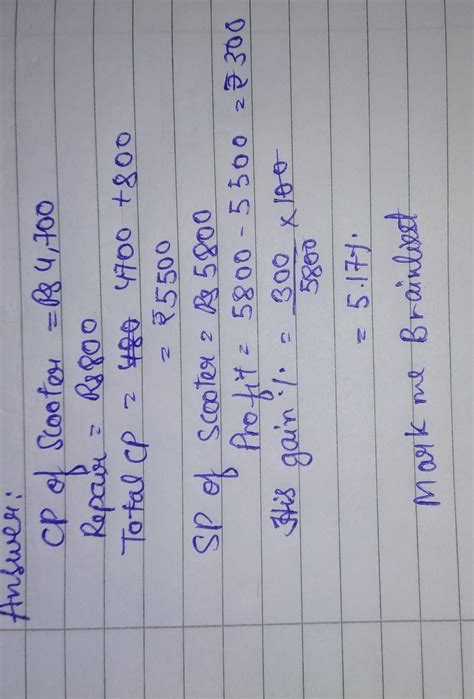 Answer:
CP of Scooter = Rs 4,700
Repair = Rs 800
Total CP = 480 4700 + 800
= ₹5500
SP of Scooter = Rs 5800
Profit = 5800 - 5500 = ₹300
His gain % = 300/5800 x 100
= 5.17%
Mark me Brainliest